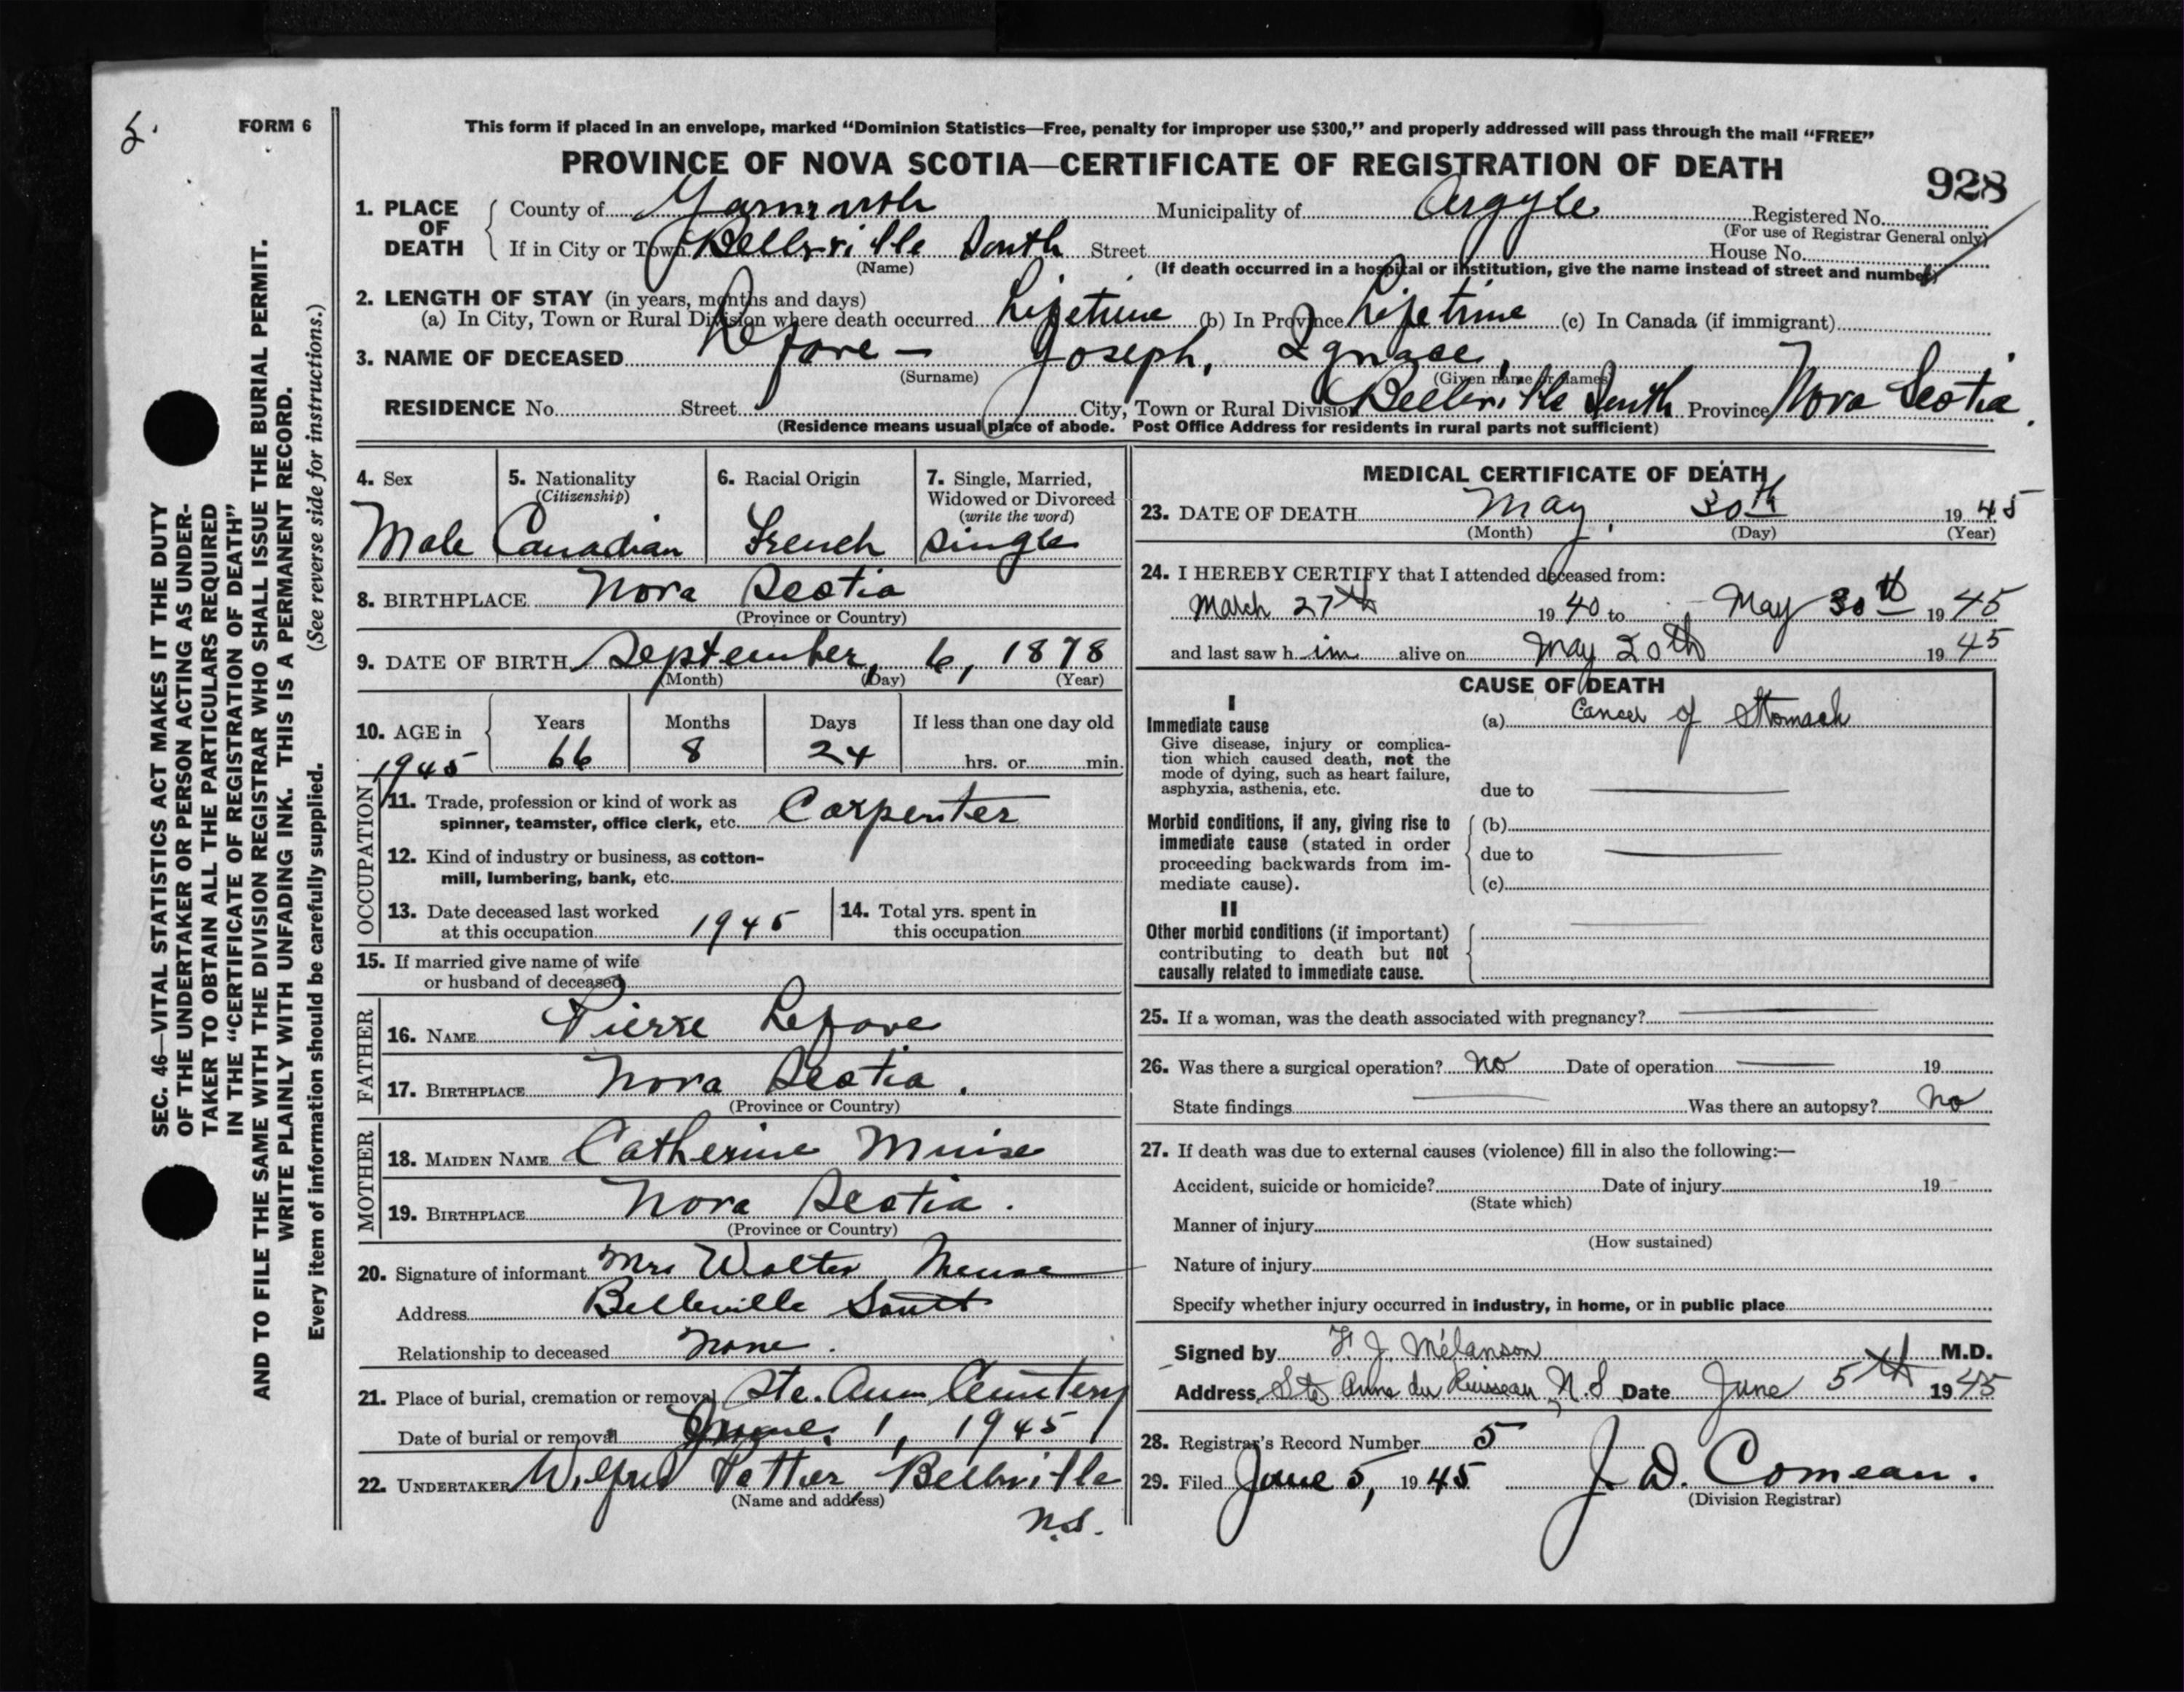 5.
FORM 6
This form if placed in an envelope, marked “Dominion Statistics—Free, penalty for improper use $300,” and properly addressed will pass through the mail “FREE”
PROVINCE OF NOVA SCOTIA—CERTIFICATE OF REGISTRATION OF DEATH
928
1. PLACE OF DEATH
County of Yarmouth Municipality of Argyle Registered No.
(For use of Registrar General only)
If in City or Town Belleville South Street House No.
(Name) (If death occurred in a hospital or institution, give the name instead of street and number)
2. LENGTH OF STAY (in years, months and days)
(a) In City, Town or Rural Division where death occurred Lifetime (b) In Province Lifetime (c) In Canada (if immigrant)
3. NAME OF DECEASED Lefave — Joseph, Ignace,
(Surname) (Given name or names)
RESIDENCE No. Street City, Town or Rural Division Belleville South Province Nova Scotia.
(Residence means usual place of abode. Post Office Address for residents in rural parts not sufficient)
4. Sex
Male
5. Nationality
(Citizenship)
Canadian
6. Racial Origin
French
7. Single, Married,
Widowed or Divorced
(write the word)
Single
8. BIRTHPLACE Nova Scotia
(Province or Country)
9. DATE OF BIRTH September, 6, 1878
(Month) (Day) (Year)
10. AGE in Years Months Days If less than one day old
1945 66 8 24 hrs. or min.
OCCUPATION
11. Trade, profession or kind of work as
spinner, teamster, office clerk, etc. Carpenter
12. Kind of industry or business, as cotton-
mill, lumbering, bank, etc.
13. Date deceased last worked
at this occupation 1945
14. Total yrs. spent in
this occupation
15. If married give name of wife
or husband of deceased
FATHER
16. NAME Pierre Lefave
17. BIRTHPLACE Nova Scotia.
(Province or Country)
MOTHER
18. MAIDEN NAME Catherine Muise
19. BIRTHPLACE Nova Scotia.
(Province or Country)
20. Signature of informant Mrs Walter Meuse
Address Belleville South
Relationship to deceased None.
21. Place of burial, cremation or removal Ste. Ann Cemetery
Date of burial or removal June, 1, 1945
22. UNDERTAKER Wilfred Pottier Belleville
(Name and address)
N.S.
MEDICAL CERTIFICATE OF DEATH
23. DATE OF DEATH May, 30th 1945
(Month) (Day) (Year)
24. I HEREBY CERTIFY that I attended deceased from:
March 27th 1940 to May 30th 1945
and last saw him alive on May 20th 1945
CAUSE OF DEATH
I
Immediate cause
Give disease, injury or complica-
tion which caused death, not the
mode of dying, such as heart failure,
asphyxia, asthenia, etc.
(a) Cancer of Stomach
due to
Morbid conditions, if any, giving rise to
immediate cause (stated in order
proceeding backwards from im-
mediate cause).
(b)
due to
(c)
II
Other morbid conditions (if important)
contributing to death but not
causally related to immediate cause.
25. If a woman, was the death associated with pregnancy?
26. Was there a surgical operation? No Date of operation 19
State findings Was there an autopsy? No
27. If death was due to external causes (violence) fill in also the following:—
Accident, suicide or homicide? Date of injury 19
(State which)
Manner of injury
(How sustained)
Nature of injury
Specify whether injury occurred in industry, in home, or in public place
Signed by F. J. Mélanson M.D.
Address Ste Anne du Ruisseau, N.S Date June 5th 1945
28. Registrar's Record Number 5
29. Filed June 5, 1945 J. D. Comeau.
(Division Registrar)
SEC. 46—VITAL STATISTICS ACT MAKES IT THE DUTY
OF THE UNDERTAKER OR PERSON ACTING AS UNDER-
TAKER TO OBTAIN ALL THE PARTICULARS REQUIRED
IN THE “CERTIFICATE OF REGISTRATION OF DEATH”
AND TO FILE THE SAME WITH THE DIVISION REGISTRAR WHO SHALL ISSUE THE BURIAL PERMIT.
WRITE PLAINLY WITH UNFADING INK. THIS IS A PERMANENT RECORD.
Every item of information should be carefully supplied. (See reverse side for instructions.)